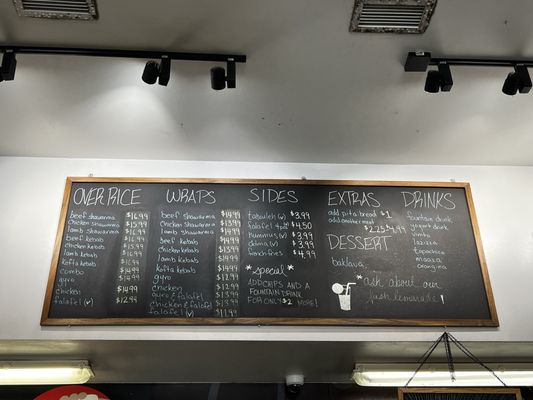 OVER RICE
beef shawarma $16.99
chicken shawarma $15.99
lamb shawarma $16.99
beef kebab $16.99
chicken kebab $15.99
lamb kebab $16.99
kofta kebab
combo
gyro
chicken $14.99
falafel (v) $12.99
WRAPS
beef shawarma $14.99
chicken shawarma $13.99
lamb shawarma $14.99
beef kebab $14.99
chicken kebab
lamb kebab $14.99
kofta kebab
gyro
chicken $12.99
gyro & falafel
chicken & falafel
falafel (v) $11.99
SIDES
tabouleh (v) $3.99
falafel $4.50
hummus (v) $3.99
dolma (v) $3.99
french fries $4.99
*special*
ADD CHIPS AND A
FOUNTAIN DRINK
FOR ONLY $2 MORE!
EXTRAS
add pita bread $1
add another meat
$2.25 $4.99
DESSERT
baklava
DRINKS
fountain drink
yogurt drink
vimto
laziza
barbican
maaza
orangina
*ask about our
fresh lemonade!